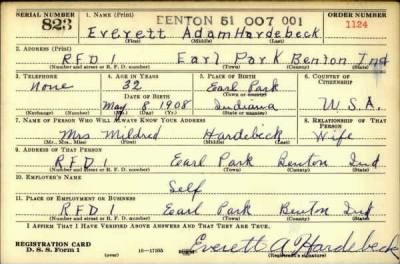 SERIAL NUMBER 1. NAME (Print) ORDER NUMBER
823 BENTON 51 007 001 1124
Everett Adam Hardebeck
(First) (Middle) (Last)
2. ADDRESS (Print)
RFD 1 Earl Park Benton Ind
(Number and street or R. F. D. number) (Town) (County) (State)
3. TELEPHONE 4. AGE IN YEARS 5. PLACE OF BIRTH 6. COUNTRY OF CITIZENSHIP
None 32 Earl Park
DATE OF BIRTH (Town or county)
May 8 1908 Indiana U.S.A.
(Exchange) (Number) (Mo.) (Day) (Yr.) (State or country)
7. NAME OF PERSON WHO WILL ALWAYS KNOW YOUR ADDRESS 8. RELATIONSHIP OF THAT PERSON
Mrs Mildred Hardebeck Wife
(Mr., Mrs., Miss) (First) (Middle) (Last)
9. ADDRESS OF THAT PERSON
RFD 1 Earl Park Benton Ind
(Number and street or R. F. D. number) (Town) (County) (State)
10. EMPLOYER'S NAME
Self
11. PLACE OF EMPLOYMENT OR BUSINESS
RFD 1 Earl Park Benton Ind
(Number and street or R. F. D. number) (Town) (County) (State)
I AFFIRM THAT I HAVE VERIFIED ABOVE ANSWERS AND THAT THEY ARE TRUE.
REGISTRATION CARD
D. S. S. Form 1 (over) Everett A Hardebeck
(Registrant's signature)